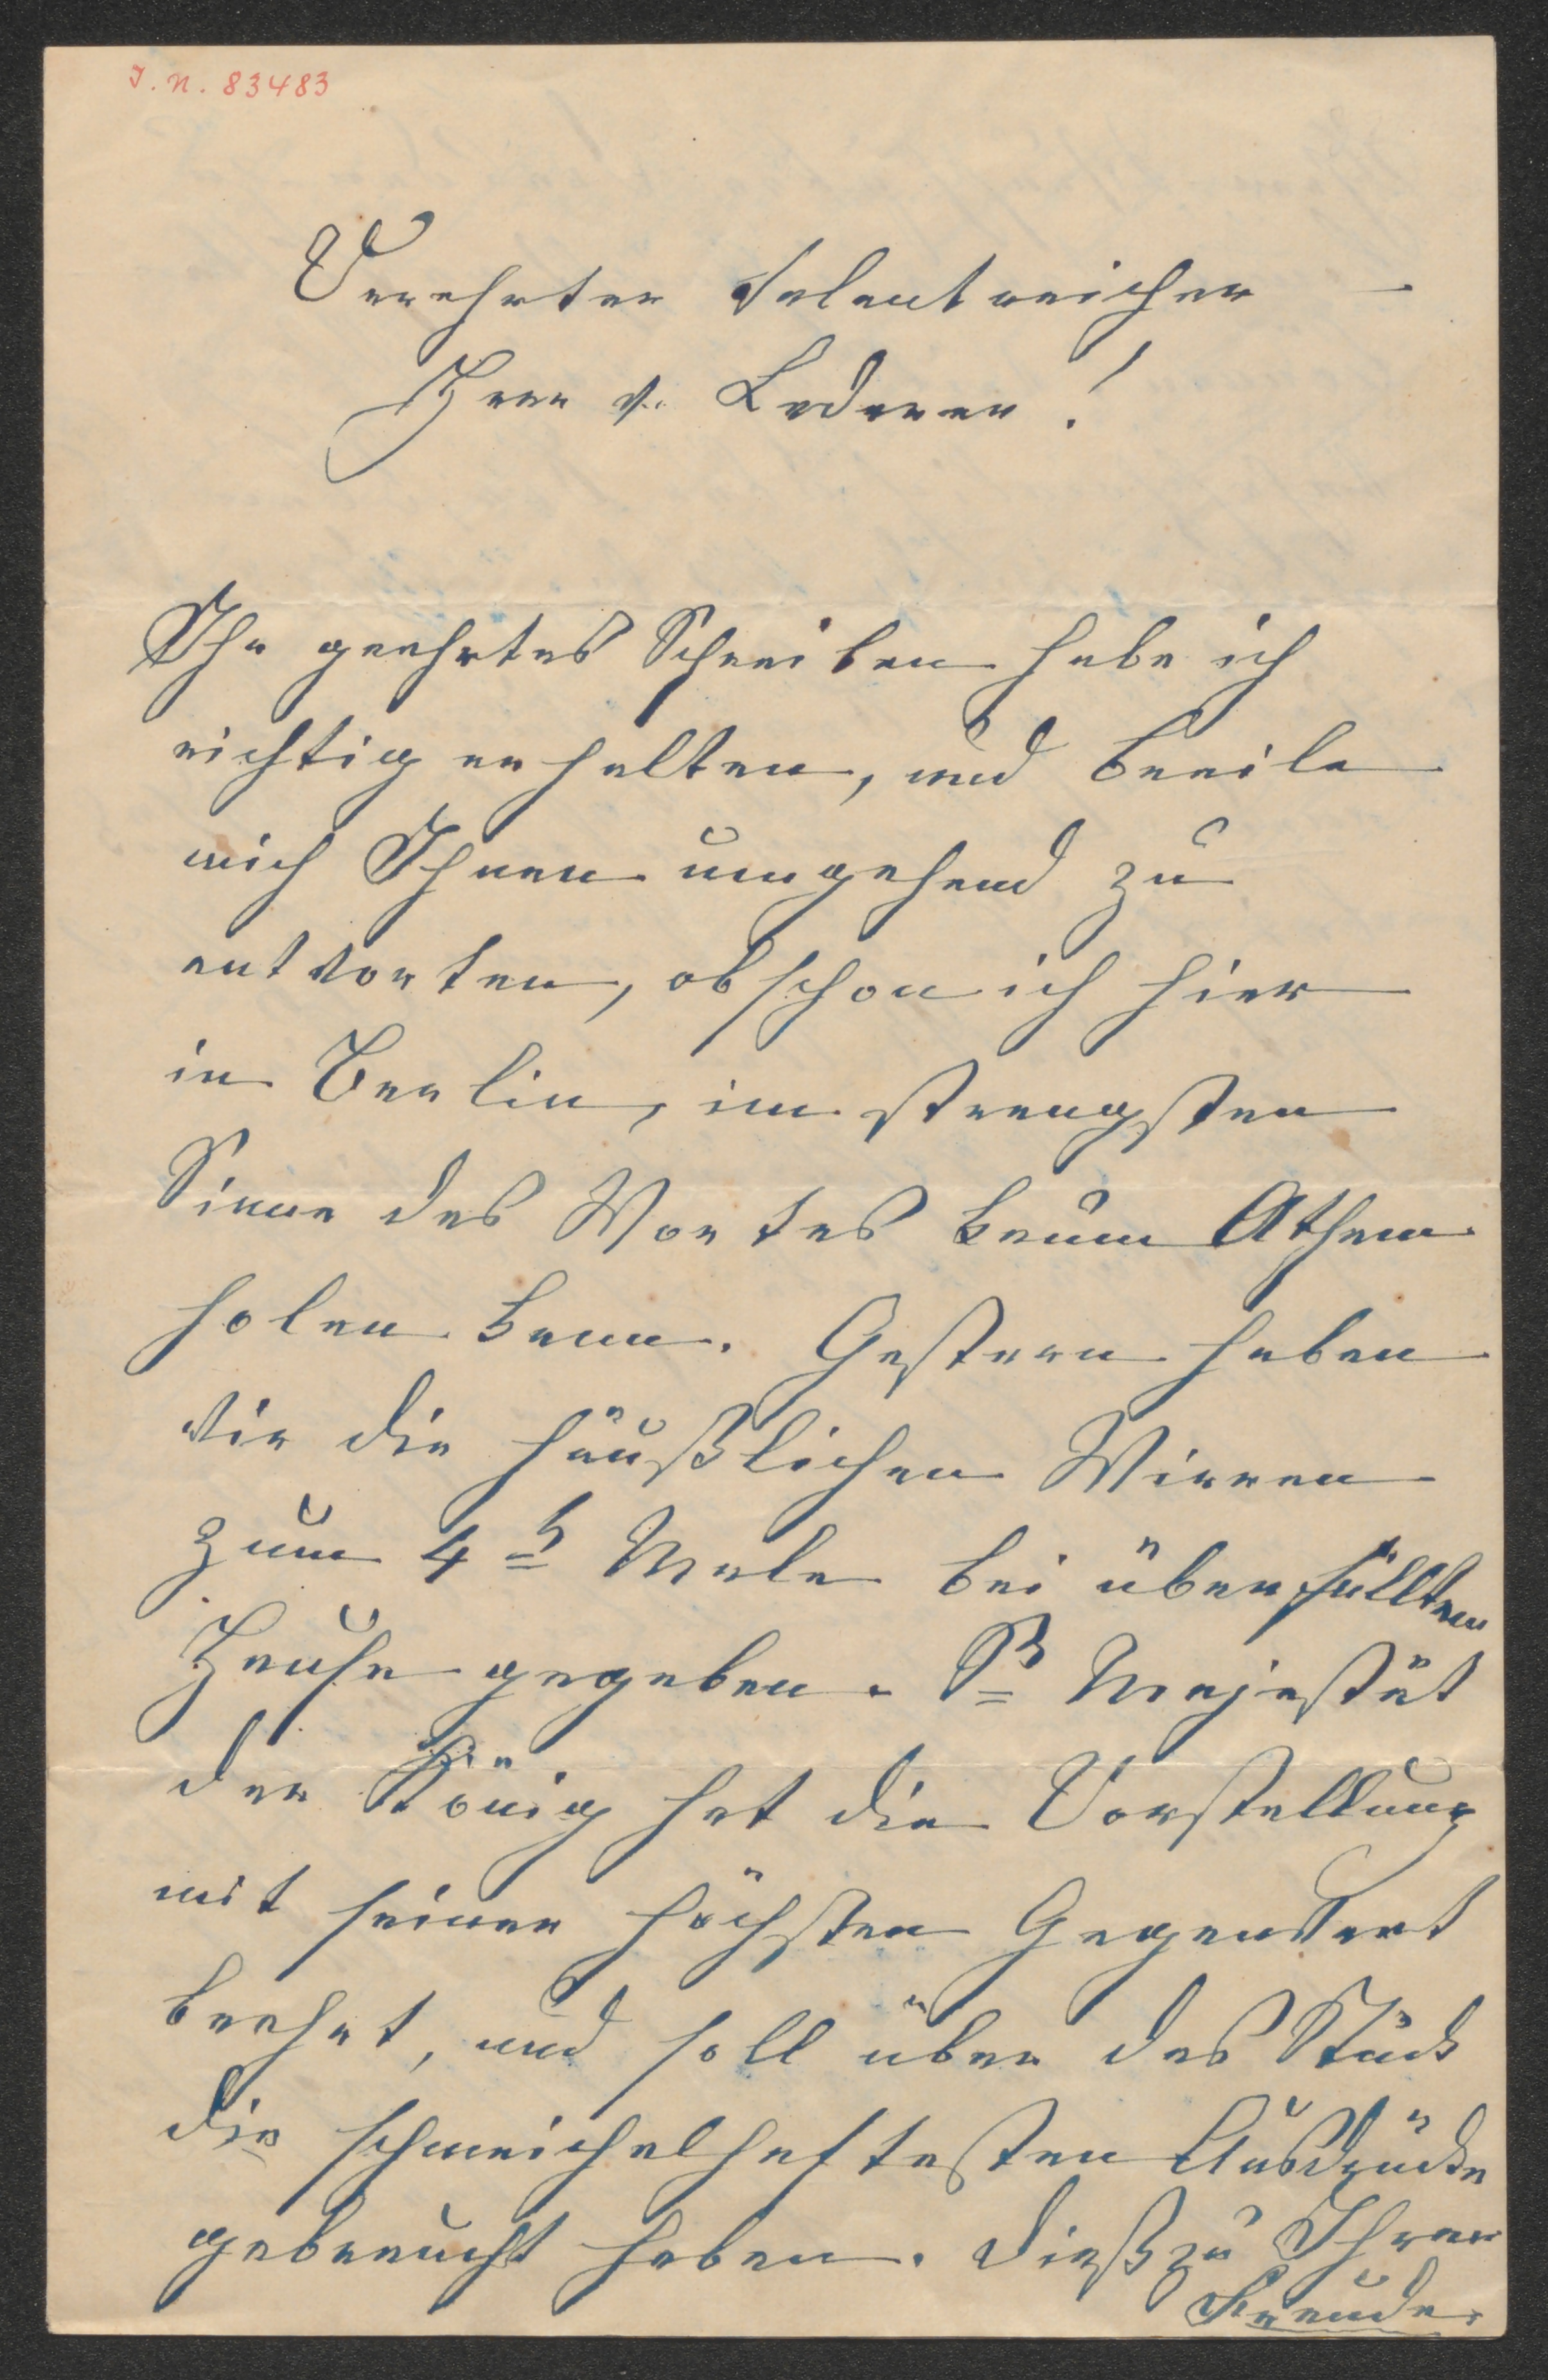 I. N. 83483
Verehrter talentreicher –
Herr v. Lederer!
Ihr geehrtes Schreiben habe ich
richtig erhalten, und beeile
mich Ihnen umgehend zu
antworten, obschon ich hier
in Berlin, im strengsten
Sinne des Wortes kaum Athem
holen kann. Gestern haben
wir die häußlichen Wirren
zum 4t Male bei überfülltem
Hause gegeben. Sr Majestät
der König hat die Vorstellung
mit seiner höchsten Gegenwart
beehrt, und soll über das Stück
die schmeichelhaftesten Ausdrücke
gebraucht haben. Dieß zu Ihrer
Freude.